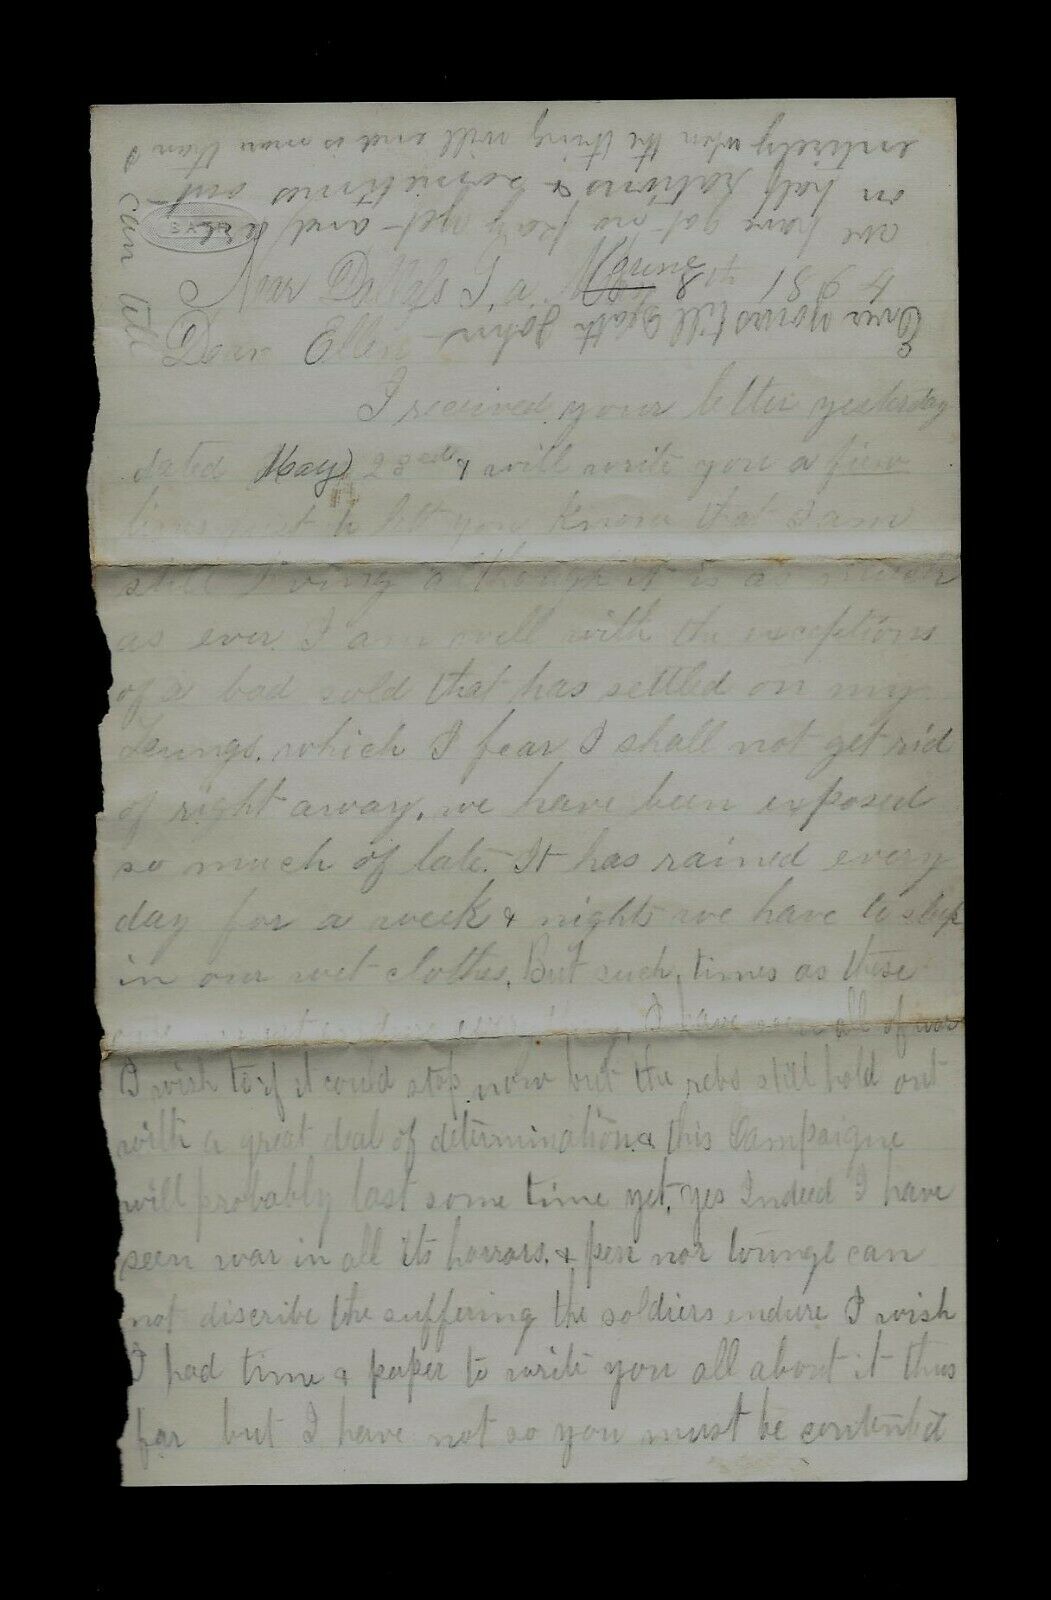 Near Dallas Ga June
4 1864
Dear Ellen
I received your letter yesterday
dated May 23 & will write you a few
lines just to lett you know that I am
still living a though it is as much
as ever. I am well with the exceptions
of a bad cold that has settled on my
Lungs. which I fear I shall not get rid
of right away. we have been exposed
so much of late. It has rained every
day for a week & nights we have to sleep
in our wet clothes. But such times as these
I have seen all of war
I wish to if it could stop now but the rebs still hold out
with a great deal of determination & this Campaigne
will probably last some time yet. yes Indeed I have
seen war in all its horrors. & pen nor tounge can
not discribe the suffering the soldiers endure I wish
I had time & paper to write you all about it thus
far but I have not so you must be contented
we have got no pay yet and are
on half rations & sometimes out
entirely when the thing will end is more than I
can tell
Ever yours till Death John